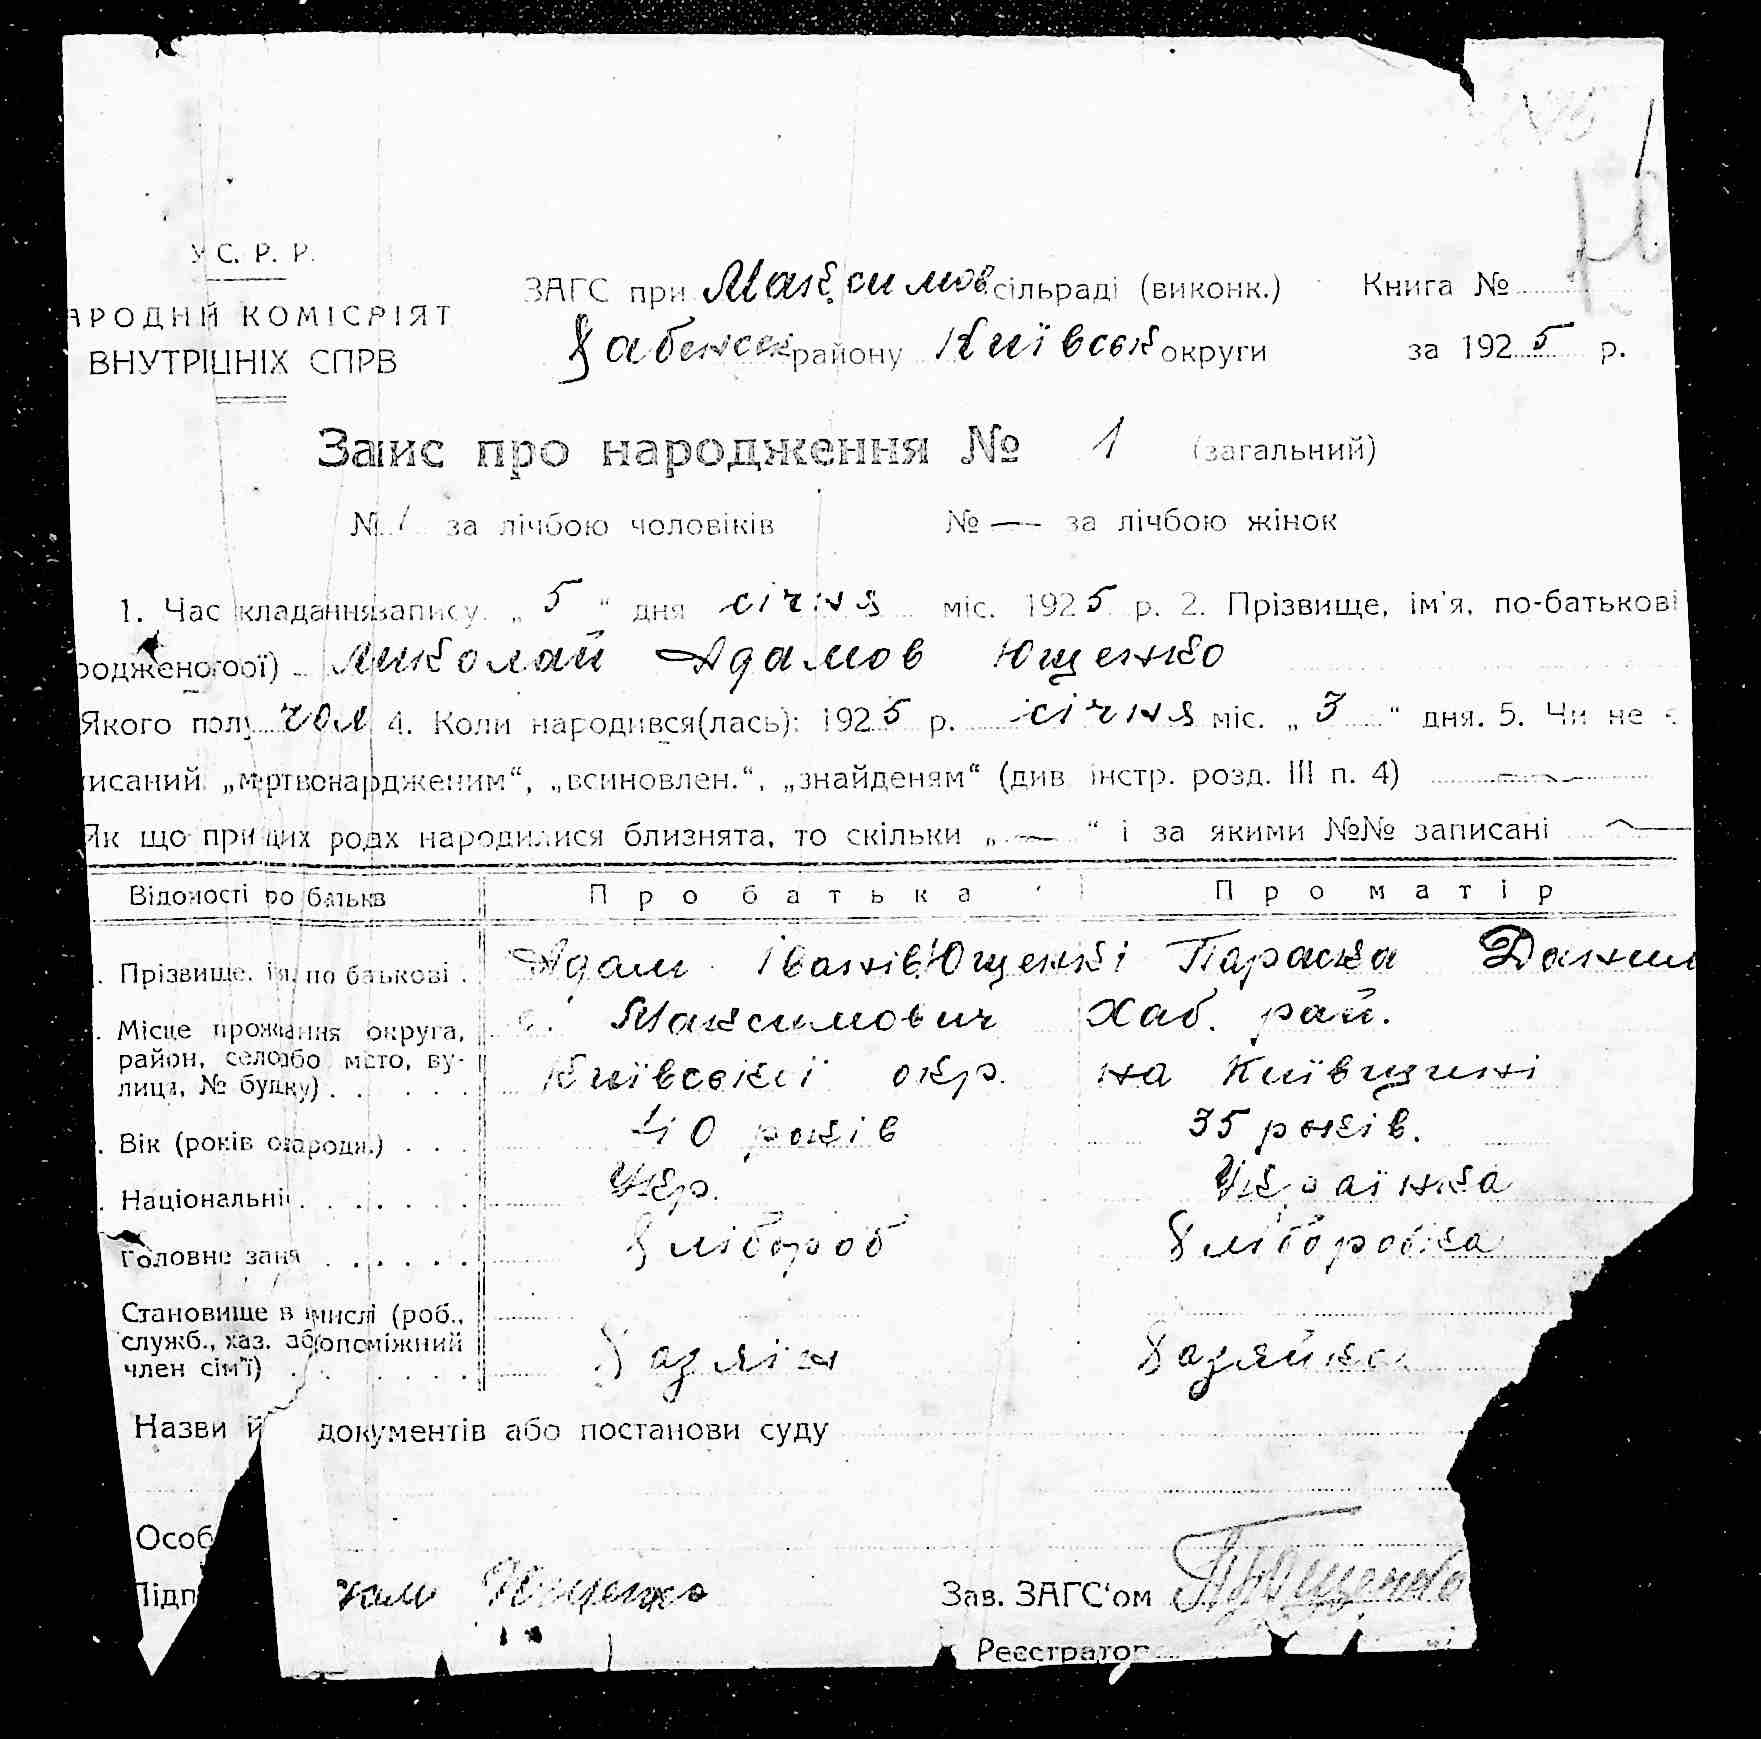 У.С.Р.Р.
АРОДНИЙ КОМІСАРІЯТ
ВНУТРІШНІХ СПРВ
ЗАГС при Максимов. сільраді (виконк.) Книга №
Хабенськ району Київськ округи за 1925 р.
Запис про народження № 1 (загальний)
№ 1 за лічбою чоловіків № — за лічбою жінок
1. Час кладання запису. „5“ дня січня міс. 1925 р. 2. Прізвище, ім'я, по-батькові
родженого(ої) Миколай Адамов Ющенко
Якого полу чол 4. Коли народився(лась): 1925 р. січня міс. „3“ дня. 5. Чи не є
писаний „мертвонардженим“, „всиновлен.“, „знайденям“ (див. інстр. розд. III п. 4) —
Як що при цих родах народилися близнята, то скільки „—“ і за якими №№ записані —
Відомості ро батькв Про батька Про матір
Прізвище, ім'я, по батькові . Адам Іванів Ющенкі Параска Данил
Місце прожвання округа, с. Максимович Хаб. рай.
район, село або місто, ву-
лиця, № будку) . . . . . Київської окр. на Київщині
Вік (років ознародн.) . . . 40 років 35 років.
Національні . . . . . . Укр. Українка
Головне заня . . . . . . Хлібороб Хліборобка
Становище в мислі (роб.,
служб., хаз. або опоміжний Хазяїн Хазяйка
член сім'ї) . . . . .
Назви й документів або постанови суду
Особ
Підп Ющенко Зав. ЗАГС'ом
Реєстратор